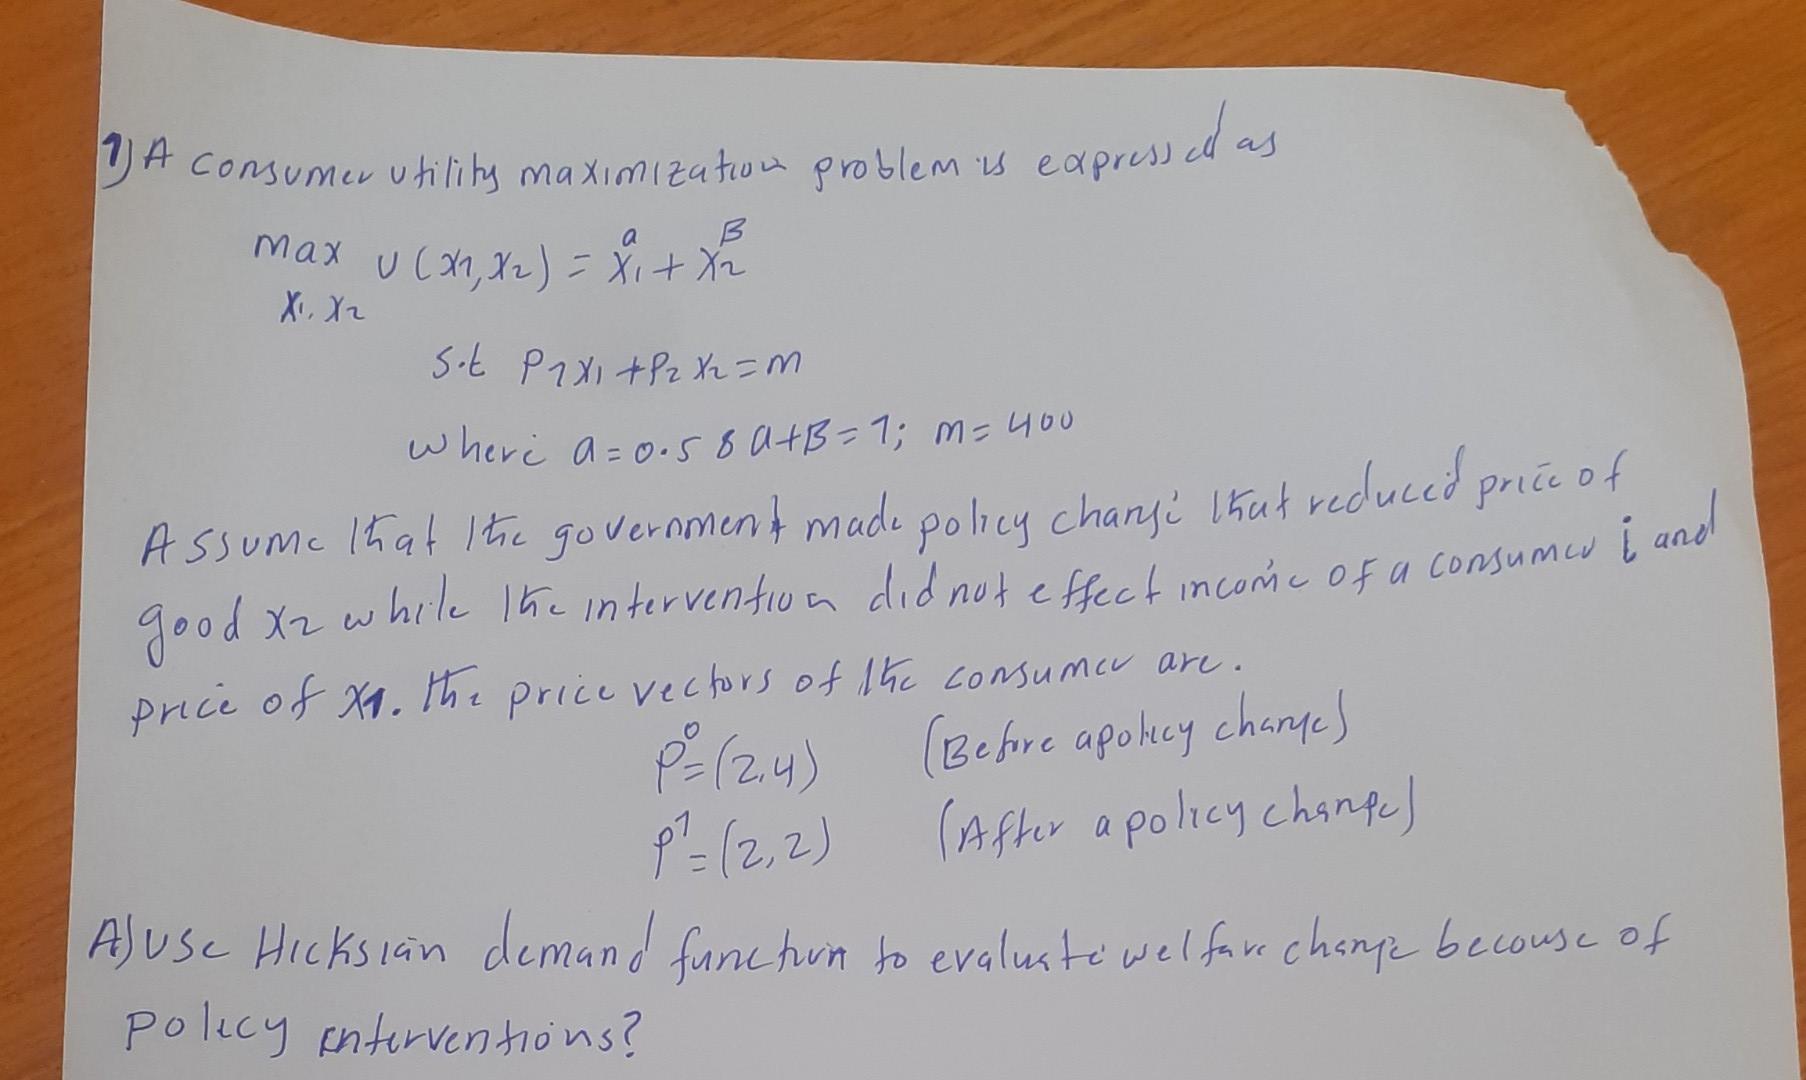 1) A consumer utility maximization problem is expressed as
max U(x1, x2) = x1^a + x2^B
x1, x2
S.t P1x1 + P2x2 = m
where a = 0.5 & a+B = 1; m = 400
Assume that the government made policy change that reduced price of
good x2 while the intervention did not effect income of a consumer i and
price of x1. the price vectors of the consumer are.
P^0 = (2,4) (Before a policy change)
P^1 = (2,2) (After a policy change)
A) Use Hicksian demand function to evaluate welfare change becouse of
policy interventions?